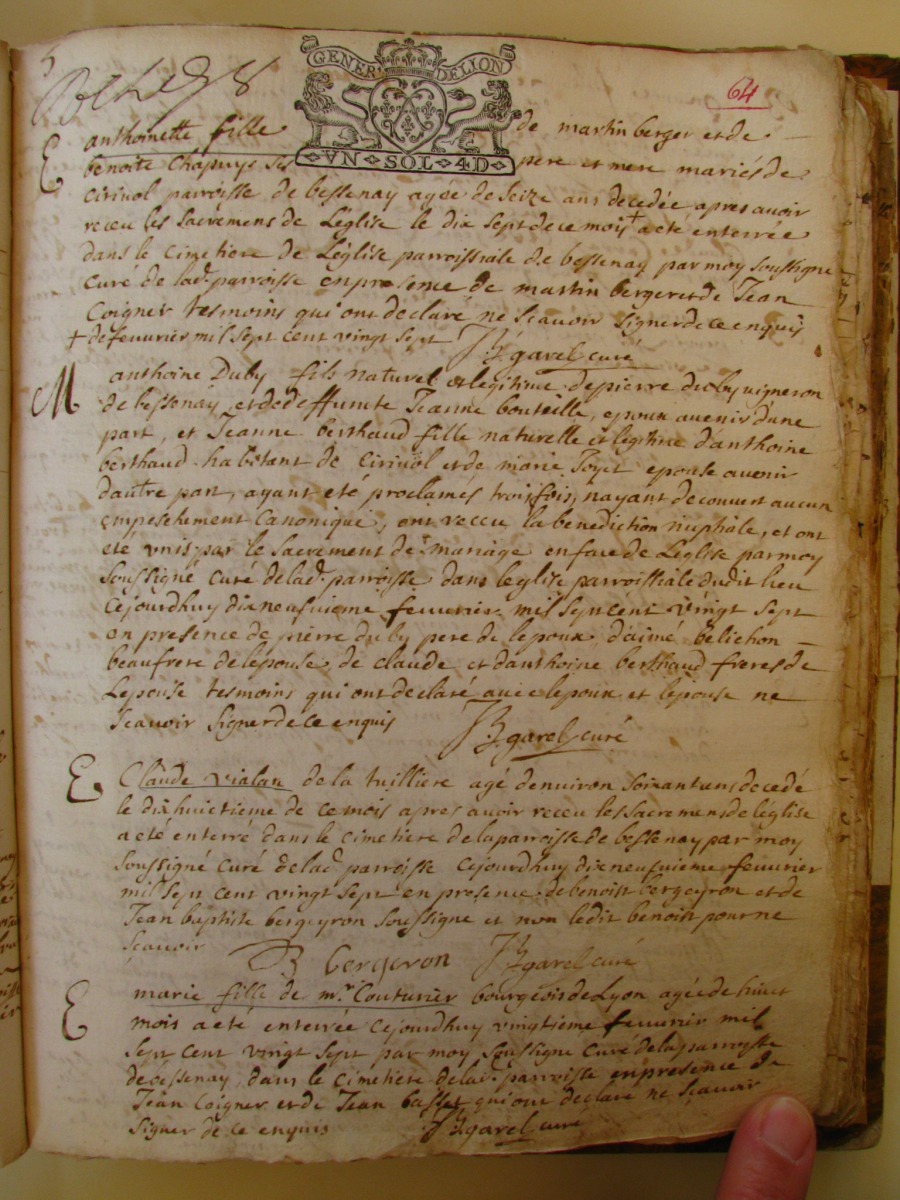 5
GENER DE LION
VN SOL 4D
64
E anthoinette fille de martin berger et de
benoite Chapuys ses pere et mere mariés de
Cirinol parroisse de bessenay agée de seize ans decedée apres avoir
receu les sacremens de Léglise le dix sept de ce mois + a eté enterrée
dans le cimetiere de Léglise parroissiale de bessenay par moy soussigne
curé de lad. parroisse en presence de martin berger et de Jean
Coigner tesmoins qui ont declaré ne scavoir signer de ce enquis
+ de fevurier mil sept cent vingt sept JB garel curé
M anthoine Duby fils naturel et legitime de pierre duby vigneron
de bessenay et de deffunte Jeanne bouteille, epoux avenir d'une
part, et Jeanne berthaud fille naturelle et légitime d'anthoine
berthaud habitant de cirinol et de marie Joyet epouse avenir
dautre part, ayant eté proclamés trois fois, nayant decouvert aucun
empeschement canonique, ont receu la benediction nuptiale, et ont
eté unis par le sacrement de mariage en face de Léglise par moy
soussigné curé de lad. parroisse dans leglise parroissiale dudit lieu
cejourdhuy dixneufuieme fevurier mil sept cent vingt sept
en presence de pierre duby pere de lepoux, d'aimé belichon
beaufrere de lépouse, de claude et d'anthoine berthaud freres de
Lepouse tesmoins qui ont declaré avec lepoux et lepouse ne
scavoir signer de ce enquis JB garel curé
E Claude vialan de la tuilliere agé denviron soixant ans decedé
le dixhuictieme de ce mois apres avoir receu les sacremens de léglise
a eté enterré dans le cimetiere de la parroisse de bessenay par moy
soussigné curé de lad. parroisse cejourdhuy dixneufuieme fevurier
mil sept cent vingt sept en presence de benoist bergeyron et de
Jean baptiste bergeyron soussigne et non ledit benoist pour ne
scavoir B bergeron JB garel curé
E marie fille de mr. Couturier bourgeois de Lyon agée de huict
mois a eté enterrée cejourdhuy vingtieme fevurier mil
sept cent vingt sept par moy soussigne curé de la parroisse
de bessenay, dans le cimetiere de lad. parroisse en presence de
Jean Coigner et de Jean basset qui ont declaré ne scavoir
signer de ce enquis JB garel curé